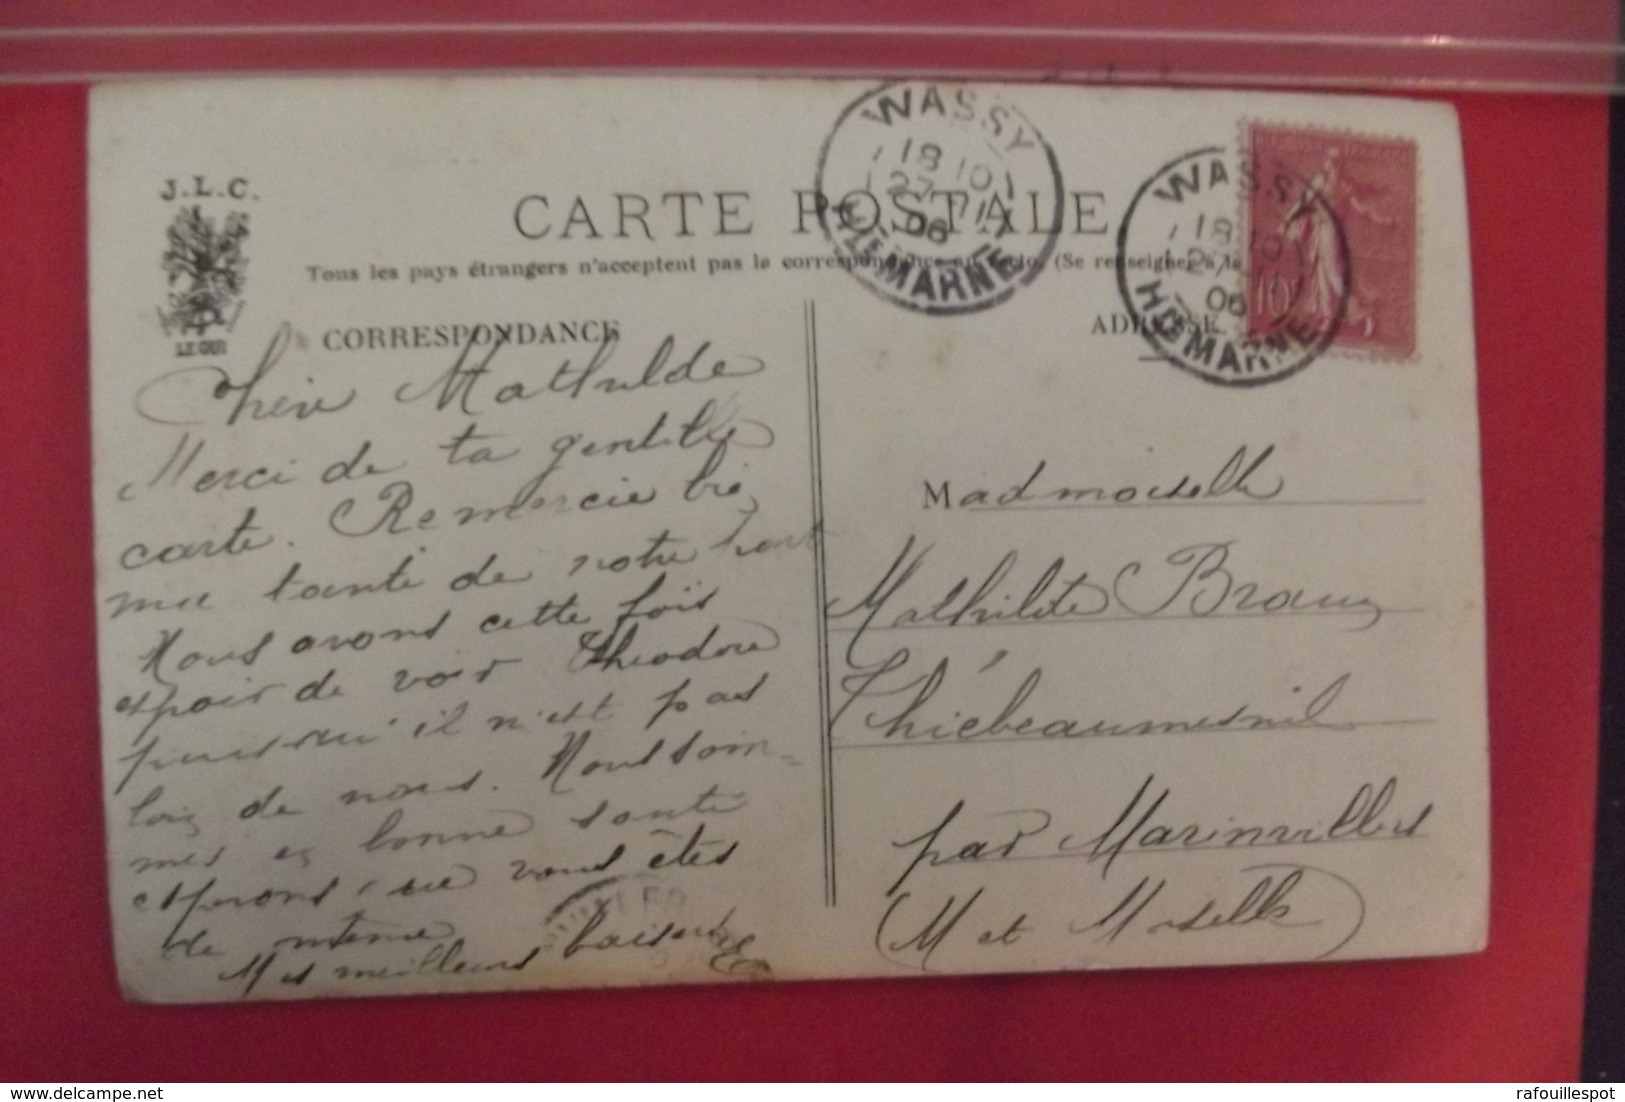 J.L.C.
LE GUI
WASSY
18 10
27
06
HTE MARNE
WASSY
18 10
27
06
HTE MARNE
10
CARTE POSTALE
Tous les pays étrangers n'acceptent pas la correspondance au recto. (Se renseigner à la
CORRESPONDANCE
ADRESSE
Chère Mathilde
Merci de ta gentille
carte. Remercie bien
ma tante de notre part
Nous avons cette fois
espoir de voir Théodore
puisqu'il n'est pas
loin de nous. Nous som=
mes en bonne santé
espérons que vous êtes
de même
Mes meilleurs baisers
Madmoiselle
Mathilde Braux
Thiébeaumesnil
par Marinvillers
(M et Moselle)
delcampe.net
rafouillespot